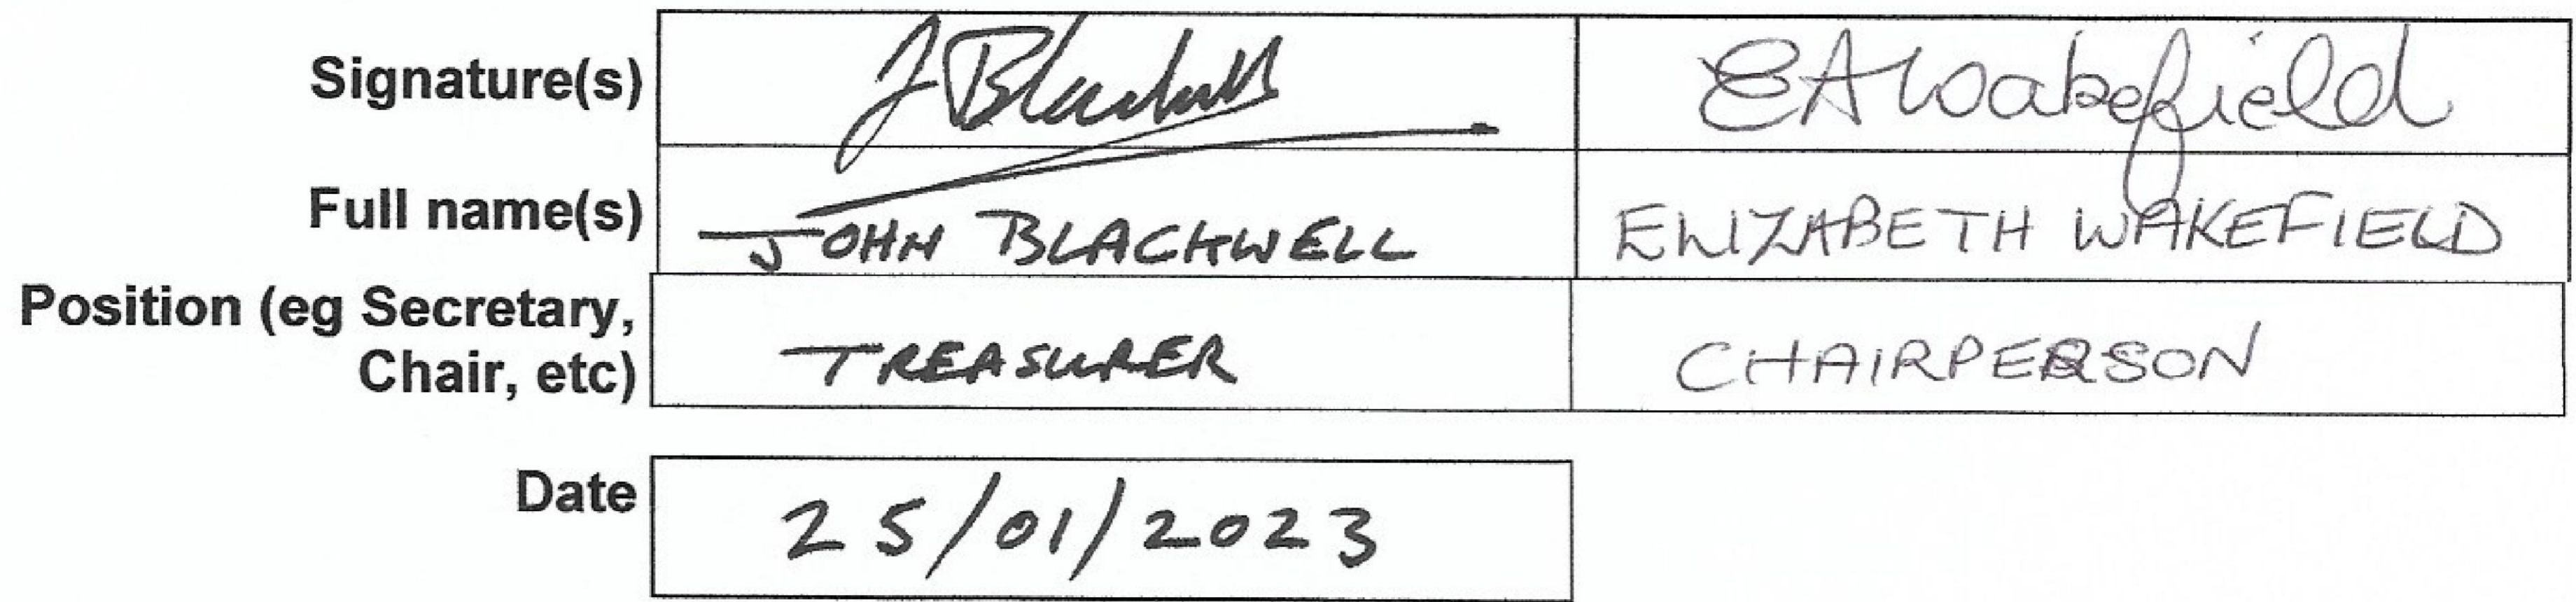 Signature(s) J Blackwell EAWakefield
Full name(s) JOHN BLACKWELL ELIZABETH WAKEFIELD
Position (eg Secretary,
Chair, etc) TREASURER CHAIRPERSON
Date 25/01/2023